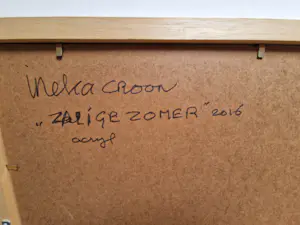 Meka CROON
„ZALIGE ZOMER" 2016
acryl